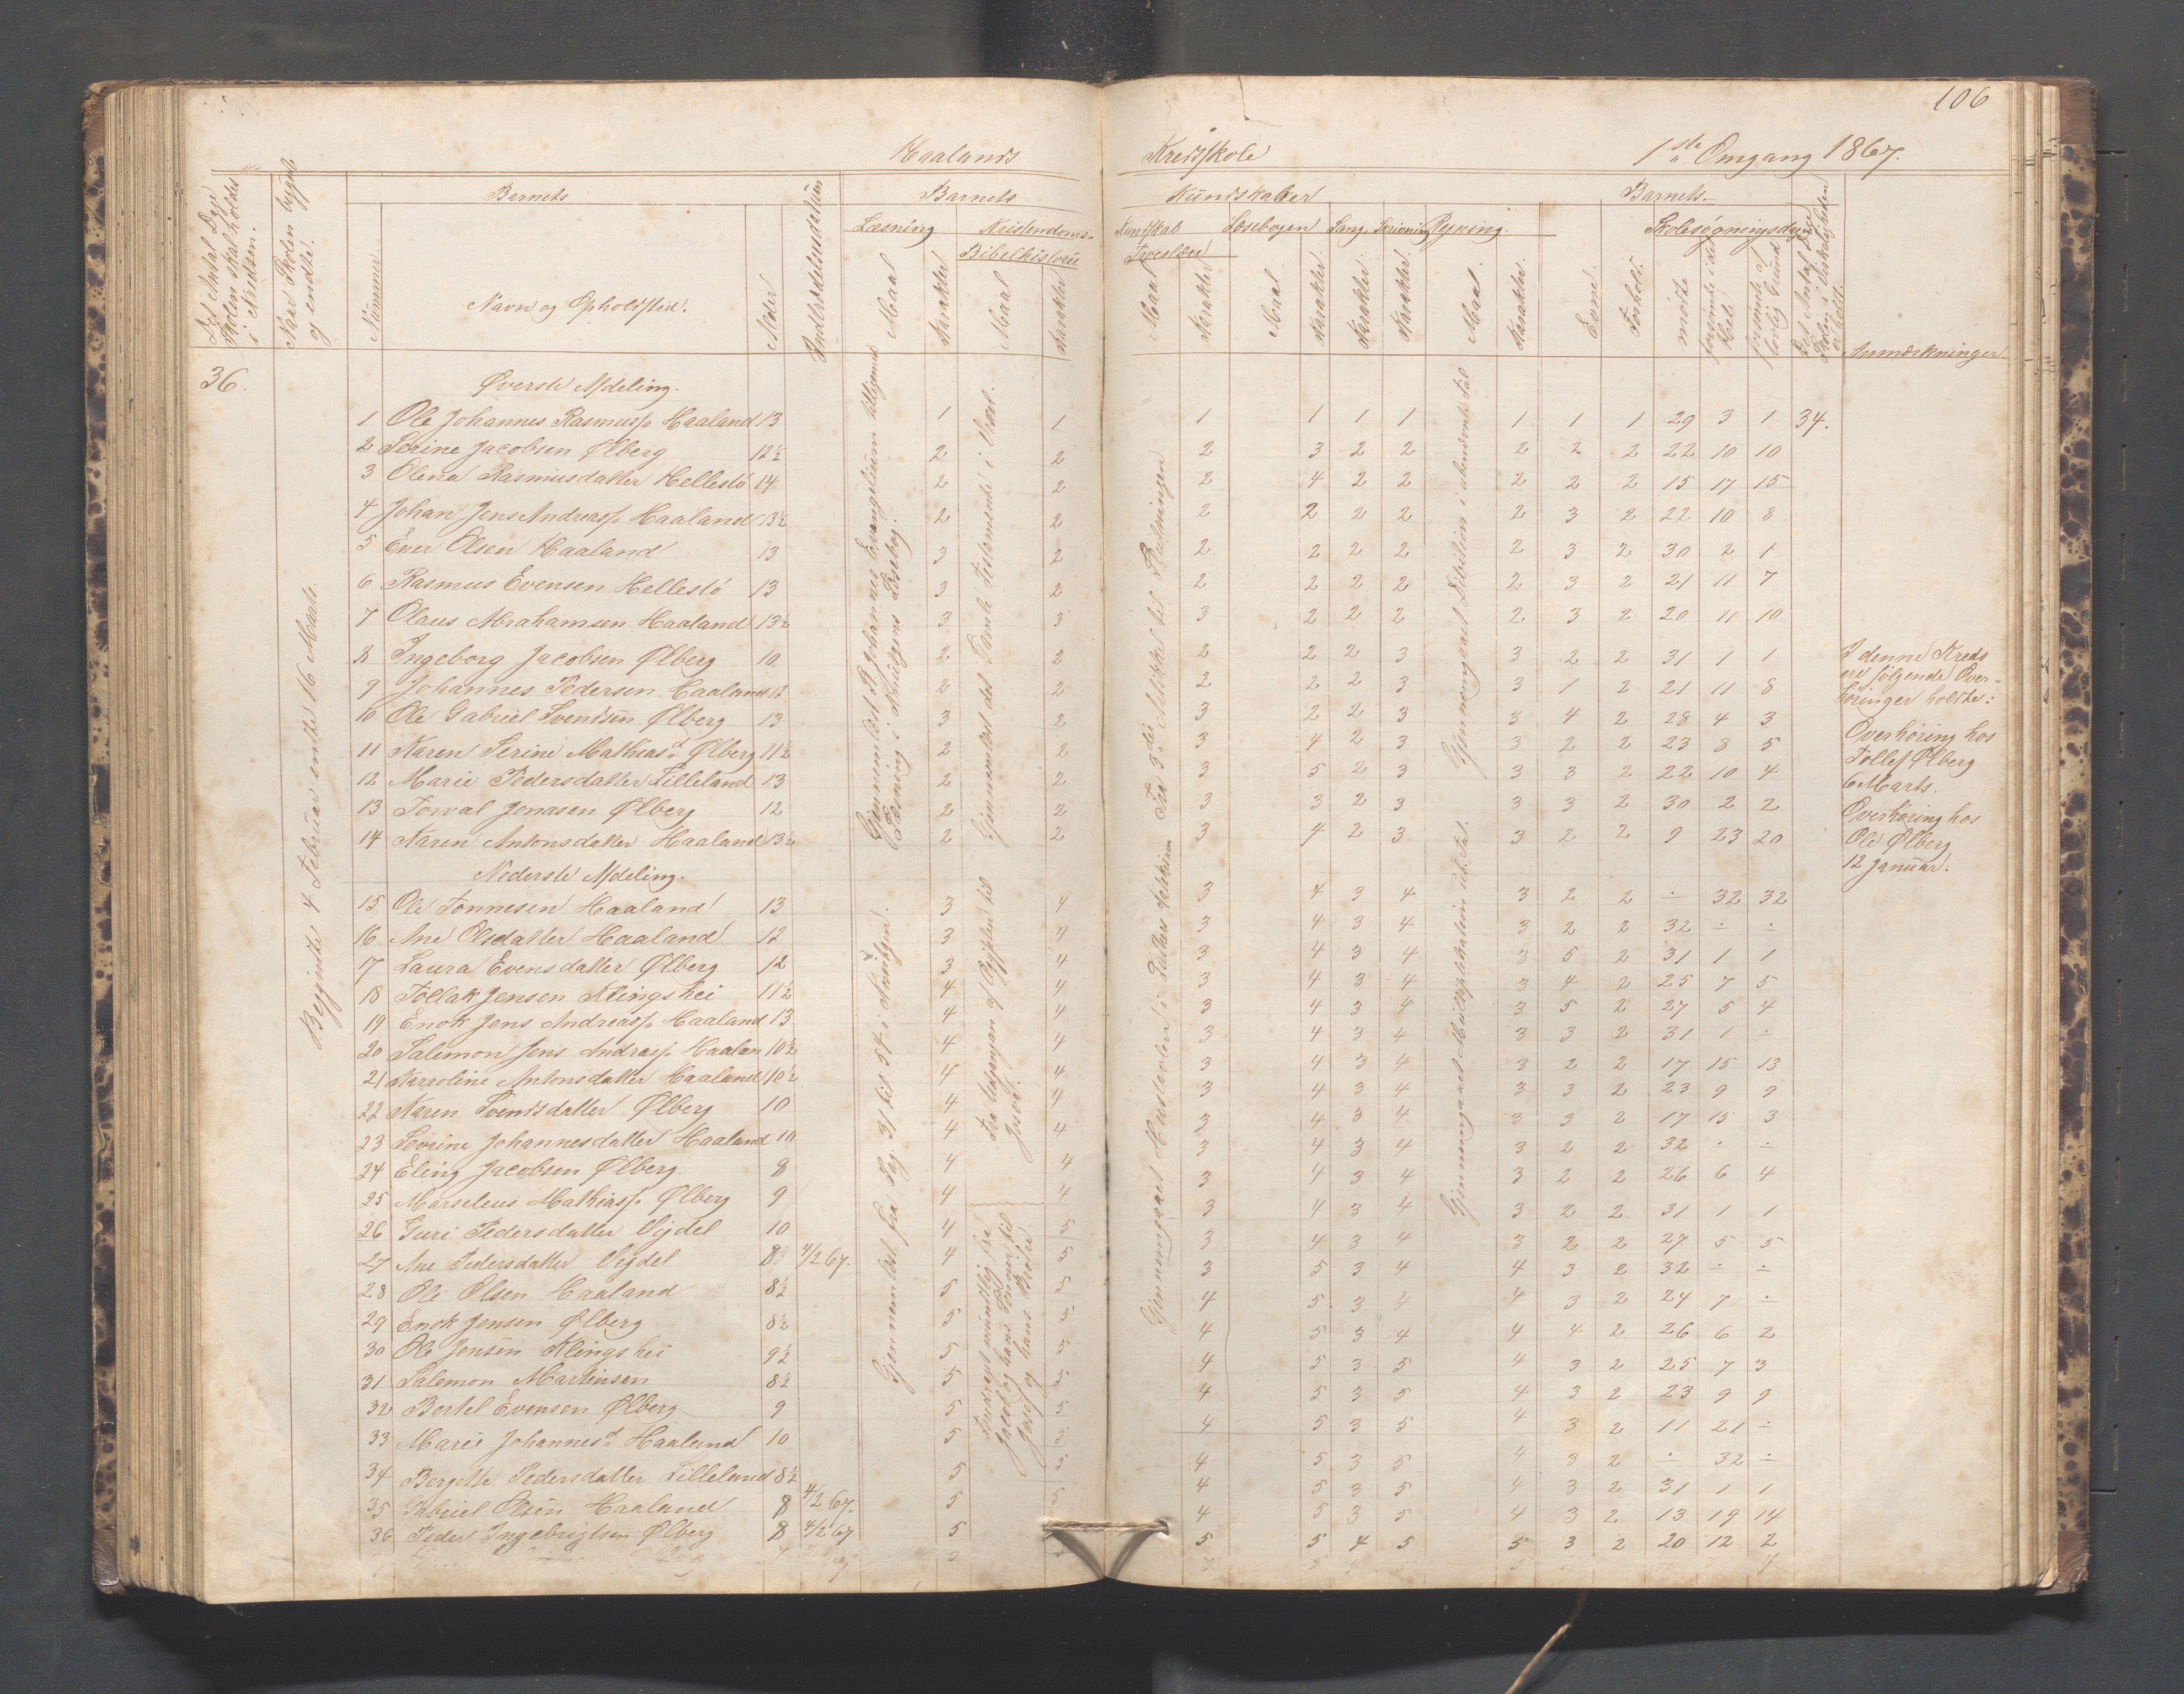 106
Haalands Kredsskole 1ste Omgang 1867.
Det Antal Dage Skolen skal holdes i Kredsen.
Naar Skolen begynte og endte.
Barnets
Nummer
Navn og Opholdsted.
Alder
Indtrædelsesdatum
Barnets Kundskaber
Læsning
Maal
Karakter
Kristendoms- Kundskab
Bibelhistorie
Maal
Karakter
Troeslære
Maal
Karakter
Læsebogen
Maal
Karakter
Sang
Karakter
Skrivning
Karakter
Regning.
Maal
Karakter
Barnets
Evne.
Forhold.
Skolesøgningsdage
mødte
forsømte i det Hele
forsømte af lovlig Grund
Det Antal Dage Skolen i Virkeligheden er holdt.
Anmærkninger.
36.
Begyndte 4 Februar endte 16 Marts.
Øverste Afdeling.
1 Ole Johannes Rasmuss. Haaland 13 1 1 1 1 1 1 1 1 1 29 3 1 34.
2 Serine Jacobsen Ølberg 12½ 2 2 2 3 2 2 2 2 2 22 10 10
3 Olena Rasmusdatter Hellestø 14 2 2 2 4 2 2 2 2 2 15 17 15
4 Johan Jens Andreass. Haaland 13½ 2 2 2 2 2 2 2 3 2 22 10 8
5 Ener Olsen Haaland 13 3 2 2 2 2 2 2 3 2 30 2 1
6 Rasmus Evensen Hellestø 13 3 2 2 2 2 2 2 3 2 21 11 7
7 Olaus Abrahamsen Haaland 13½ 3 3 3 2 2 2 2 3 2 20 11 10
8 Ingeborg Jacobsen Ølberg 10 2 2 2 2 2 3 3 2 2 31 1 1
9 Johannes Pedersen Haaland 12 2 2 2 2 2 3 3 1 2 21 11 8
10 Ole Gabriel Svendsen Ølberg 13 3 2 3 2 2 3 3 4 2 28 4 3
11 Karen Serine Mathiasd. Ølberg 11½ 2 2 3 4 2 3 3 2 2 23 8 5
12 Marie Pedersdatter Lilleland 13 2 2 3 5 2 3 3 3 2 22 10 4
13 Torval Jonasen Ølberg 12 2 2 3 3 2 3 3 3 2 30 2 2
14 Karen Antonsdatter Haaland 13½ 2 2 3 4 2 3 3 2 2 9 23 20
Nederste Afdeling.
15 Ole Tønnesen Haaland 13 3 4 3 4 3 4 3 2 2 ÷ 32 32
16 Ane Olsdatter Haaland 12 3 4 3 4 3 4 3 2 2 32 ÷ ÷
17 Laura Evensdatter Ølberg 12 3 4 3 4 3 4 3 5 2 31 1 1
18 Tollak Jensen Klingshei 11½ 4 4 3 4 3 4 3 4 2 25 7 5
19 Enok Jens Andreass. Haaland 13 4 4 3 4 3 4 3 5 2 27 5 4
20 Salemon Jens Andreass. Haalan 10½ 4 4 3 4 3 4 3 3 2 31 1 ÷
21 Karroline Antonsdatter Haaland 10½ 4 4 3 4 3 4 3 2 2 17 15 13
22 Karen Svendsdatter Ølberg 10 4 4 3 4 3 4 3 3 2 23 9 9
23 Sevrine Johannesdatter Haaland 10 4 4 3 4 3 4 3 3 2 17 15 3
24 Eling Jacobsen Ølberg. 8 4 4 3 4 3 4 3 2 2 32 ÷ ÷
25 Marselius Mathiass. Ølberg 9 4 4 3 4 3 4 3 2 2 26 6 4
26 Guri Pedersdatter Vigdel 10 4 5 3 4 3 4 3 2 2 31 1 1
27 Ane Pedersdatter Vigdel 8 4/2 67. 4 5 3 4 3 4 3 2 2 27 5 5
28 Ole Olsen Haaland 8½ 5 5 3 5 3 4 4 3 2 32 ÷ ÷
29 Enok Jensen Ølberg 8½ 5 5 4 5 3 4 4 3 2 24 7 ÷
30 Ole Jensen Klingshei 9½ 5 5 4 5 3 4 4 4 2 26 6 2
31 Salemon Martinsen 8½ 5 5 4 5 3 5 4 3 2 25 7 3
32 Bertel Evensen Ølberg 9 5 5 4 5 3 5 4 3 2 23 9 9
33 Marie Johannesd. Haaland 10 5 5 4 5 3 5 4 3 2 11 21 ÷
34 Berjette Pedersdatter Lilleland 8½ 5 5 4 5 3 5 4 3 2 ÷ 32 ÷
35 Gabriel Olsen Haaland 8 4/2 67. 5 5 4 5 3 5 4 3 2 31 1 1
36 Peder Ingebrigtsen Ølberg 8 4/2 67 5 4 5 3 5 4 3 2 13 19 14
5 5 4 5 5 3 2 20 12 2
Gjennemlæst St. Johannes Evangelium tilligemed Læsning i Krulgens Læsebog.
Gjennemlæst det Gamle Testamente i Vært.
Gjennemlæst fra Pag. 31 til 54 i
Fra Udgangen af Ægypten til Josva.
Foredraget mundtlig fra Jakob og hans Sønner til Josef og hans Brødre.
Fra 3die Artikkel til Slutningen
Gjennemgaaet Hustavlen i Luthers Katekismus
Gjennemgaaet Division i ubenævnte Tal
Gjennemgaaet Multiplikation ub. Tal.
I denne Kreds
ere følgende Over-
høringer holdte:
Overhøring hos
Tollef Ølberg
6 Marts.
Overhøring hos
Ole Ølberg
12 Januar.